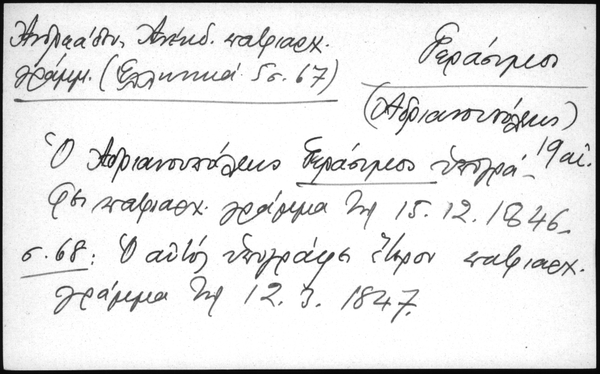 Ἀνέκδ. πατριαρχ.
γράμμ. (Ἑλληνικά 5 σ. 67)
Γεράσιμος
(Ἀδριανουπόλεως)
19 αἰ.
Ὁ Ἀδριανουπόλεως Γεράσιμος ὑπογρά-
φει πατριαρχ. γράμμα τῇ 15.12.1846.
σ. 68: Ὁ αὐτός ὑπογράφει ἕτερον πατριαρχ.
γράμμα τῇ 12.3.1847.